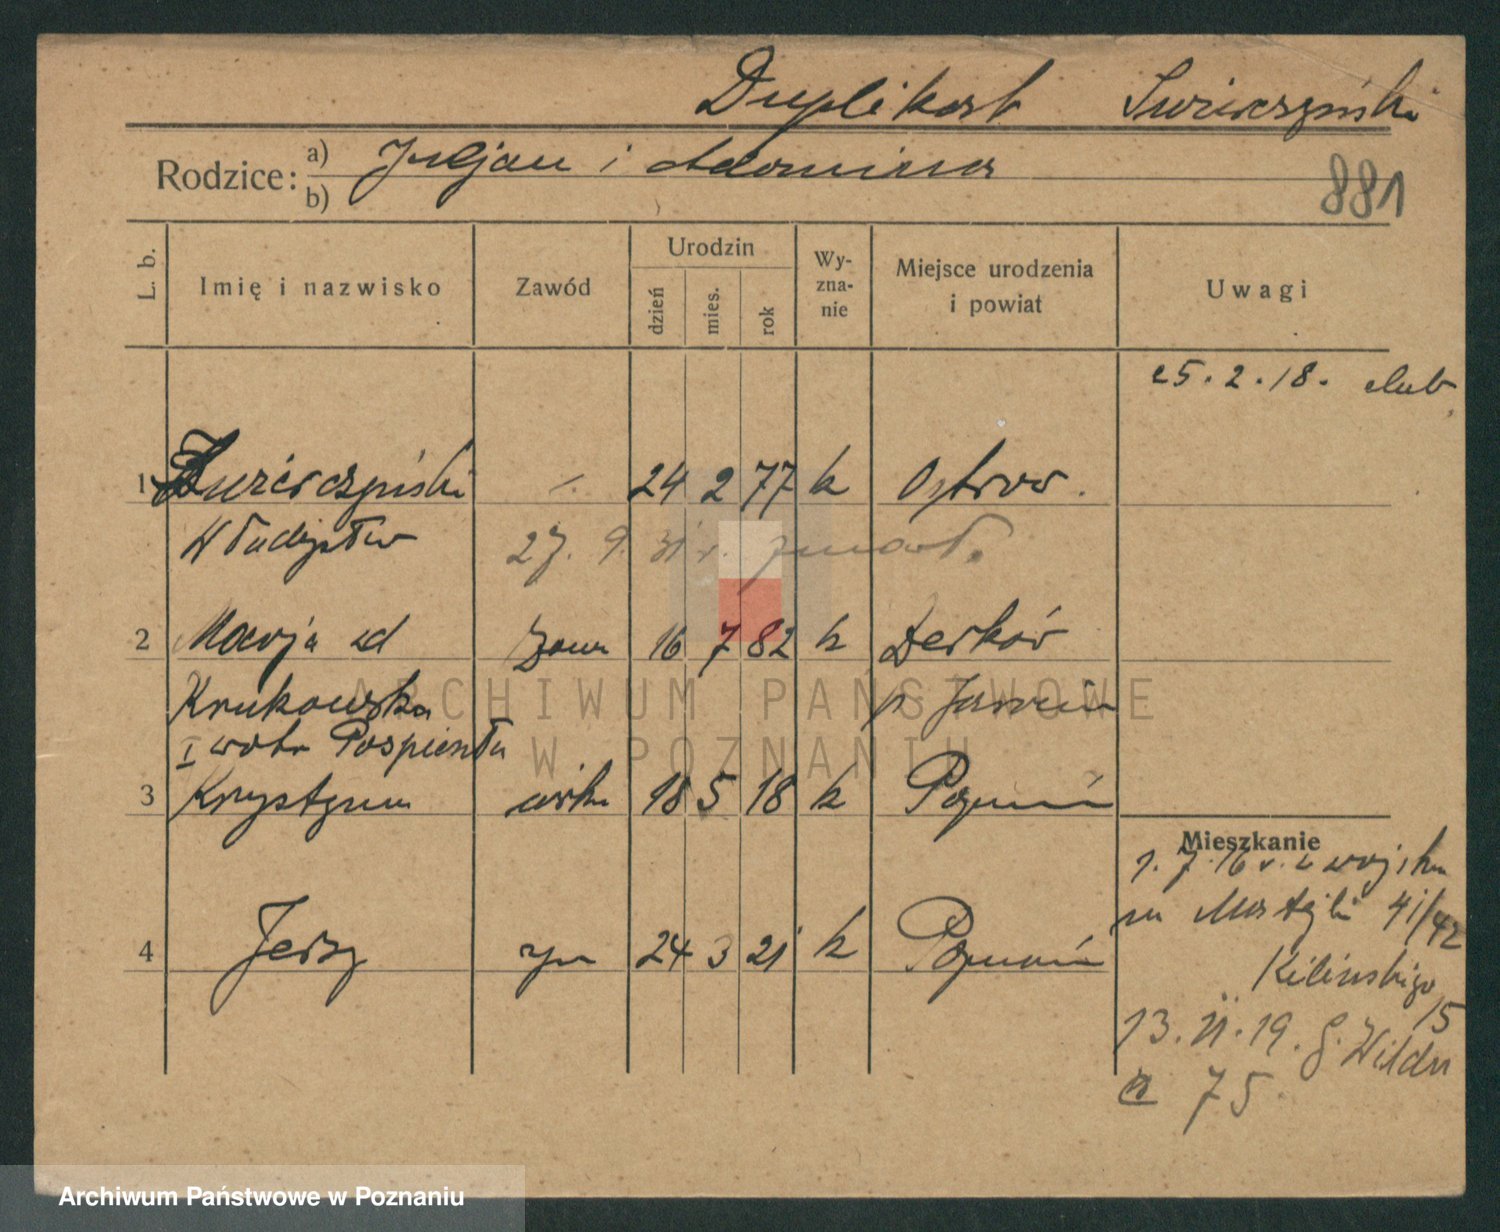 Duplikat Świerczyński
Rodzice: a) Juljan i
b)
881
L. b.
Imię i nazwisko
Zawód
Urodzin
dzień
mies.
rok
Wy-
zna-
nie
Miejsce urodzenia
i powiat
Uwagi
25.2.18. ślub
1 Świerczyński 24 2 77 k Ostrów.
Władysław 27. 9. 31 r. zmarł.
2 Marja zd żona 16 7 82 k
Krukowska p. Jarocin
I
3 Krystyna córka 18 5 18 k Poznań
Mieszkanie
1. 7. 16 r. z wojska
41/42
4 Jerzy syn 24 3 21 k Poznań
Kilińskiego
15
13. 11. 19. G. Wilda
75.
ARCHIWUM PAŃSTWOWE
W POZNANIU
Archiwum Państwowe w Poznaniu